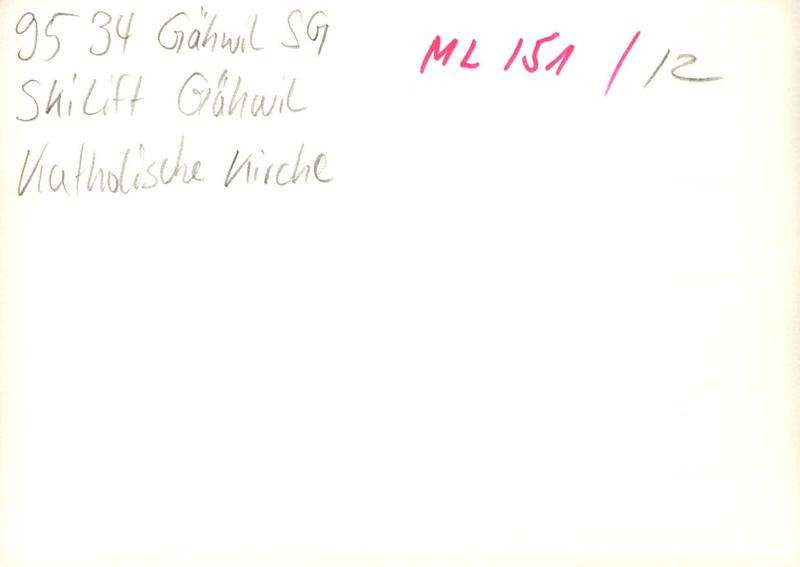 9534 Gähwil SG
ML 151 / 12
Skilift Gähwil
Katholische Kirche